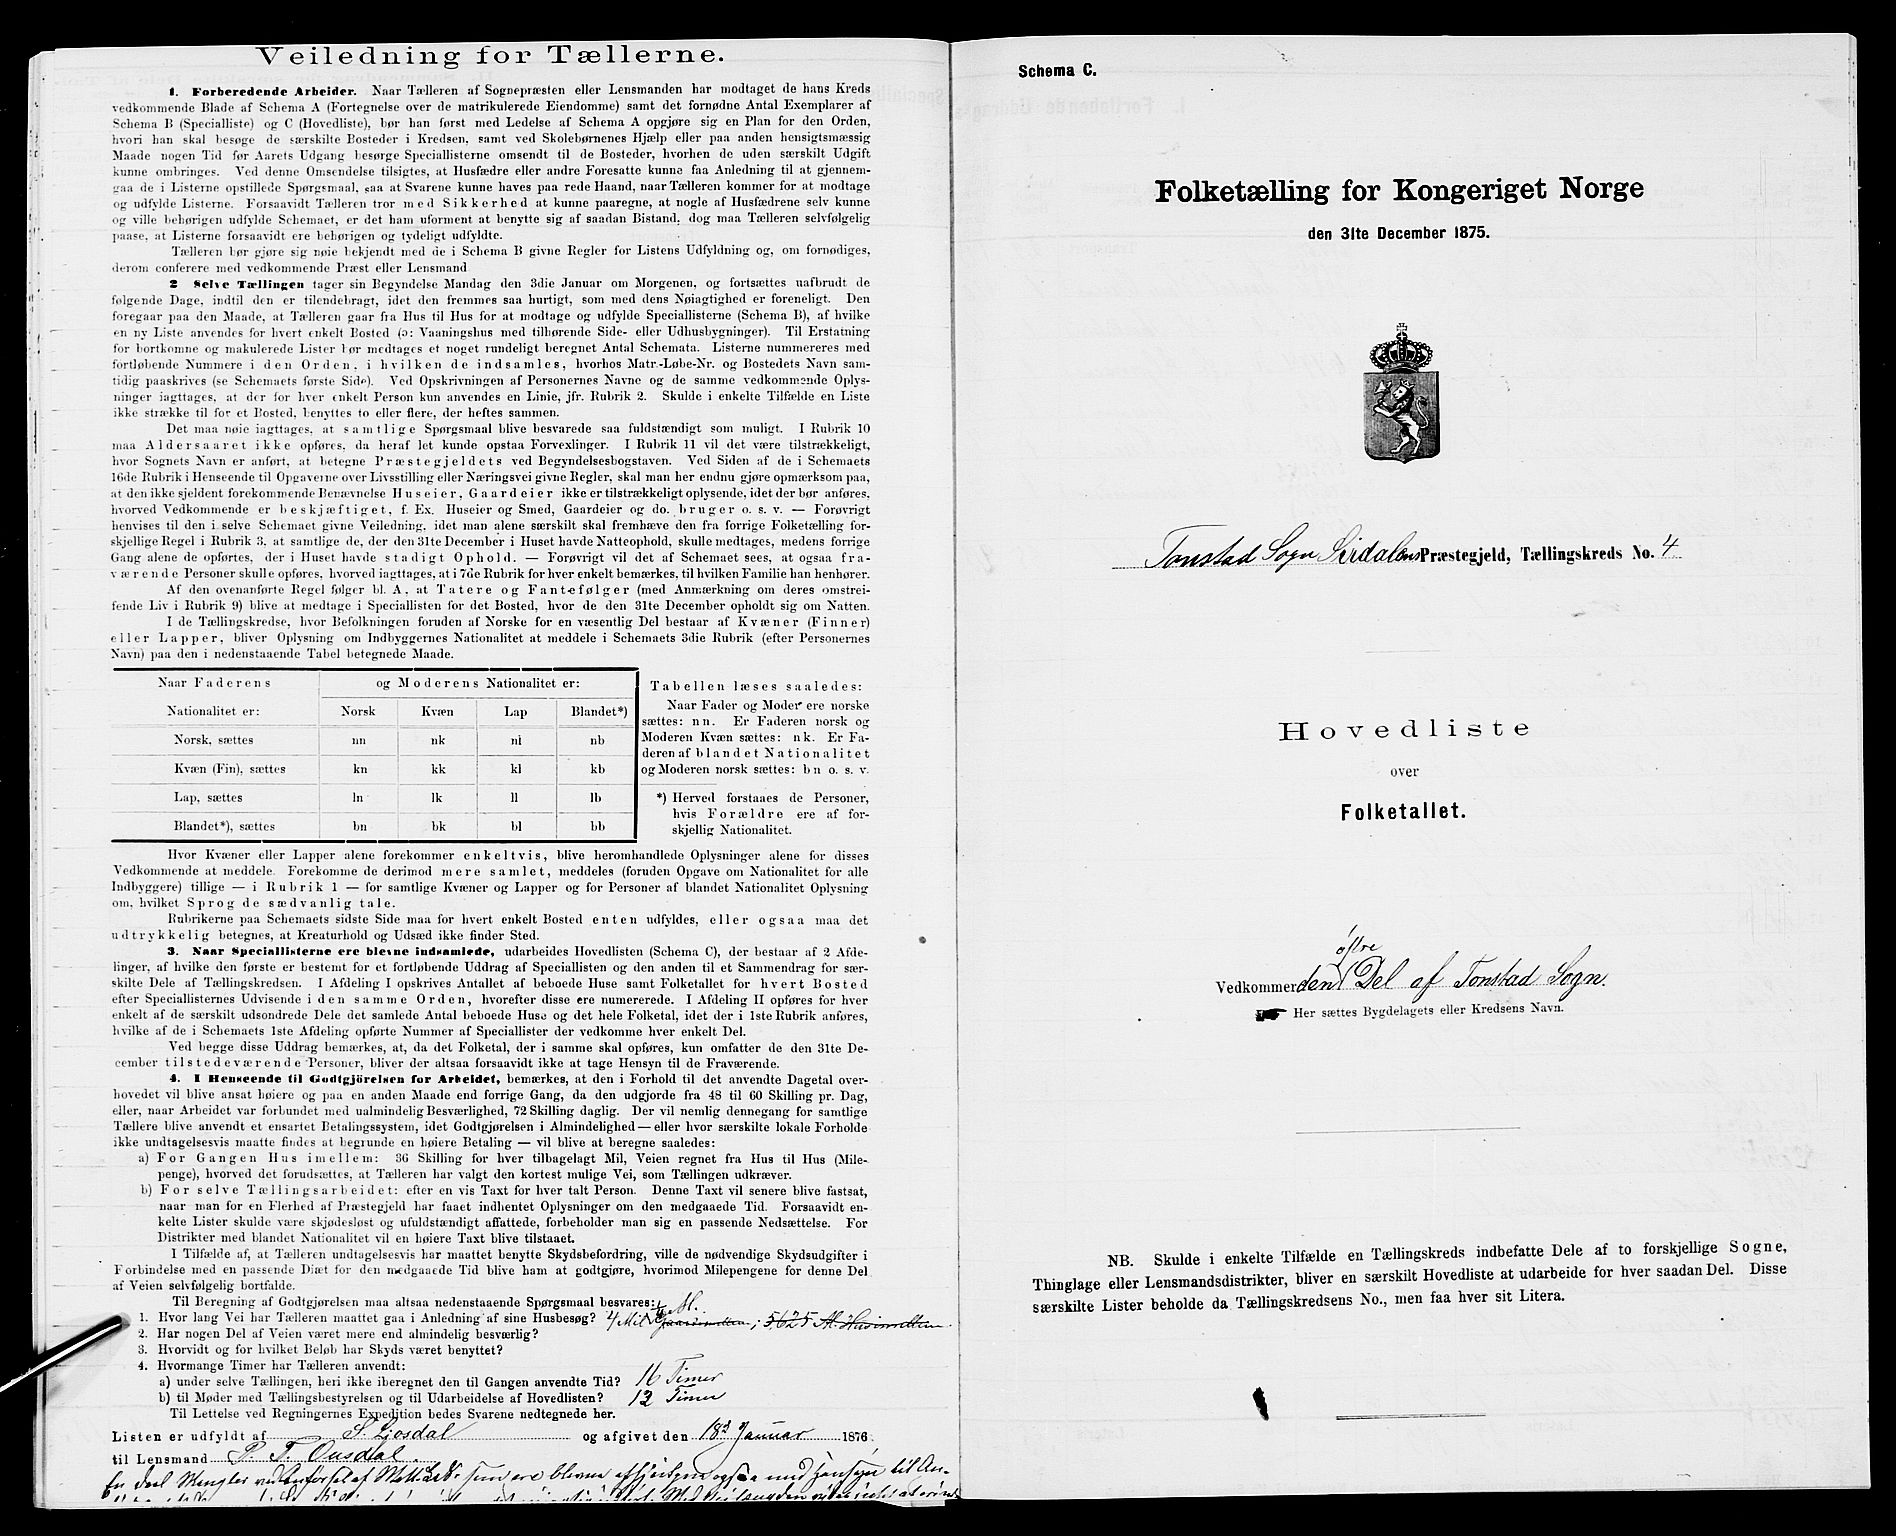 Veiledning for Tællerne.
1. Forberedende Arbeider. Naar Tælleren af Sognepræsten eller Lensmanden har modtaget de hans Kreds
vedkommende Blade af Schema A (Fortegnelse over de matrikulerede Eiendomme) samt det fornødne Antal Exemplarer af
Schema B (Specialliste) og C (Hovedliste), bør han først med Ledelse af Schema A opgjøre sig en Plan for den Orden,
hvori han skal besøge de særskilte Bosteder i Kredsen, samt ved Skolebørnenes Hjælp eller paa anden hensigtsmæssig
Maade nogen Tid før Aarets Udgang besørge Speciallisterne omsendt til de Bosteder, hvorhen de uden særskilt Udgift
kunne ombringes. Ved denne Omsendelse tilsigtes, at Husfædre eller andre Foresatte kunne faa Anledning til at gjennem-
gaa de i Listerne opstillede Spørgsmaal, saa at Svarene kunne haves paa rede Haand, naar Tælleren kommer for at modtage
og udfylde Listerne. Forsaavidt Tælleren tror med Sikkerhed at kunne paaregne, at nogle af Husfædrene selv kunne
og ville behørigen udfylde Schemaet, er det ham uforment at benytte sig af saadan Bistand, dog maa Tælleren selvfølgelig
paase, at Listerne forsaavidt ere behørigen og tydeligt udfyldte.
Tælleren bør gjøre sig nøie bekjendt med de i Schema B givne Regler for Listens Udfyldning og, om fornødiges,
derom conferere med vedkommende Præst eller Lensmand
2 Selve Tællingen tager sin Begyndelse Mandag den 3die Januar om Morgenen, og fortsættes uafbrudt de
følgende Dage, indtil den er tilendebragt, idet den fremmes saa hurtigt, som med dens Nøiagtighed er foreneligt. Den
foregaar paa den Maade, at Tælleren gaar fra Hus til Hus for at modtage og udfylde Speciallisterne (Schema B), af hvilke
en ny Liste anvendes for hvert enkelt Bosted (ɔ: Vaaningshus med tilhørende Side- eller Udhusbygninger). Til Erstatning
for bortkomne og makulerede Lister bør medtages et noget rundeligt beregnet Antal Schemata. Listerne nummereres med
fortløbende Nummere i den Orden, i hvilken de indsamles, hvorhos Matr.-Løbe-Nr. og Bostedets Navn sam-
tidig paaskrives (se Schemaets første Side). Ved Opskrivningen af Personernes Navne og de samme vedkommende Oplys-
ninger iagttages, at der for hver enkelt Person kun anvendes en Linie, jfr. Rubrik 2. Skulde i enkelte Tilfælde en Liste
ikke strække til for et Bosted, benyttes to eller flere, der heftes sammen.
Det maa nøie iagttages, at samtlige Spørgsmaal blive besvarede saa fuldstændigt som muligt. I Rubrik 10
maa Aldersaaret ikke opføres, da heraf let kunde opstaa Forvexlinger. I Rubrik 11 vil det være tilstrækkeligt,
hvor Sognets Navn er anført, at betegne Præstegjeldets ved Begyndelsesbogstaven. Ved Siden af de i Schemaets
16de Rubrik i Henseende til Opgaverne over Livsstilling eller Næringsvei givne Regler, skal man her endnu gjøre opmærksom paa,
at den ikke sjeldent forekommende Benævnelse Huseier, Gaardeier ikke er tilstrækkeligt oplysende, idet der bør anføres,
hvorved Vedkommende er beskjæftiget, f. Ex. Huseier og Smed, Gaardeier og do. bruger o. s. v. — Forøvrigt
henvises til den i selve Schemaet givne Veiledning, idet man alene særskilt skal fremhæve den fra forrige Folketælling for-
skjellige Regel i Rubrik 3, at samtlige de, der den 31te December i Huset havde Natteophold, skulle medtages, medens forrige
Gang alene de opførtes, der i Huset havde stadigt Ophold. — Forøvrigt vil det af Schemaet sees, at ogsaa fra-
værende Personer skulle opføres, hvorved iagttages, at i 7de Rubrik for hver enkelt bemærkes, til hvilken Familie han henhører.
Af den ovenanførte Regel følger bl. A. at Tatere og Fantefølger (med Anmærkning om deres omstrei-
fende Liv i Rubrik 9) blive at medtage i Speciallisten for det Bosted, hvor de den 31te December opholdt sig om Natten.
I de Tællingskredse, hvor Befolkningen foruden af Norske for en væsentlig Del bestaar af Kvæner (Finner)
eller Lapper, bliver Oplysning om Indbyggernes Nationalitet at meddele i Schemaets 3die Rubrik (efter Personernes
Navn) paa den i nedenstaaende Tabel betegnede Maade.
Naar Faderens og Moderens Nationalitet er:
Nationalitet er: Norsk Kvæn Lap Blandet*)
Norsk, sættes nn nk nl nb
Kvæn (Fin), sættes kn kk kl kb
Lap, sættes ln lk ll lb
Blandet*), sættes bn bk bl bb
Tabellen læses saaledes:
Naar Fader og Moder ere norske
sættes: nn. Er Faderen norsk og
Moderen Kvæn sættes: nk. Er Fa-
deren af blandet Nationalitet
og Moderen norsk sættes: bn o. s. v.
*) Herved forstaaes de Personer,
hvis Forældre ere af for-
skjellig Nationalitet.
Hvor Kvæner eller Lapper alene forekommer enkeltvis, blive heromhandlede Oplysninger alene for disses
Vedkommende at meddele. Forekomme de derimod mere samlet, meddeles (foruden Opgave om Nationalitet for alle
Indbyggere) tillige — i Rubrik 1 — for samtlige Kvæner og Lapper og for Personer af blandet Nationalitet Oplysning
om, hvilket Sprog de sædvanlig tale.
Rubrikerne paa Schemaets sidste Side maa for hvert enkelt Bosted enten udfyldes, eller ogsaa maa det
udtrykkelig betegnes, at Kreaturhold og Udsæd ikke finder Sted.
3. Naar Speciallisterne ere blevne indsamlede, udarbeides Hovedlisten (Schema C), der bestaar af 2 Afde-
linger, af hvilke den første er bestemt for et fortløbende Uddrag af Speciallisten og den anden til et Sammendrag for sær-
skilte Dele af Tællingskredsen. I Afdeling I opskrives Antallet af beboede Huse samt Folketallet for hvert Bosted
efter Speciallisternes Udvisende i den samme Orden, hvorefter disse ere numererede. I Afdeling II opføres for hver
enkelt af de særskilt udsondrede Dele det samlede Antal beboede Huse og det hele Folketal, idet der i 1ste Rubrik anføres,
hvilke af de i Schemaets 1ste Afdeling opførte Nummer af Speciallister der vedkomme hver enkelt Del.
Ved begge disse Uddrag bemærkes, at, da det Folketal, der i samme skal opføres, kun omfatter de den 31te De-
cember tilstedeværende Personer, bliver der altsaa forsaavidt ikke at tage Hensyn til de Fraværende.
4. I Henseende til Godtgjörelsen for Arbeidet, bemærkes, at den i Forhold til det anvendte Dagetal over-
hovedet vil blive ansat høiere og paa en anden Maade end forrige Gang, da den udgjorde fra 48 til 60 Skilling pr. Dag,
eller, naar Arbeidet var forbundet med ualmindelig Besværlighed, 72 Skilling daglig. Der vil nemlig dennegang for samtlige
Tællere blive anvendt et ensartet Betalingssystem, idet Godtgjørelsen i Almindelighed — eller hvor særskilte lokale Forholde
ikke undtagelsesvis maatte findes at begrunde en høiere Betaling — vil blive at beregne saaledes:
a) For Gangen Hus imellem: 36 Skilling for hver tilbagelagt Mil, Veien regnet fra Hus til Hus (Mile-
penge), hvorved det forudsættes, at Tælleren har valgt den kortest mulige Vei, som Tællingen udkræver.
b) For selve Tællingsarbeidet: efter en vis Taxt for hver talt Person. Denne Taxt vil senere blive fastsat,
naar man for en Flerhed af Præstegjeld har faaet indhentet Oplysninger om den medgaaede Tid. Forsaavidt en-
kelte Lister skulde være skjødesløst og ufuldstændigt affattede, forbeholder man sig en passende Nedsættelse. For
Distrikter med blandet Nationalitet vil en høiere Taxt blive tilstaaet.
I Tilfælde af, at Tælleren undtagelsesvis har maattet benytte Skydsbefordring, ville de nødvendige Skydsudgifter i
Forbindelse med en passende Diæt for den medgaaede Tid blive ham at godtgjøre, hvorimod Milepengene for denne Del
af Veien selvfølgelig bortfalde.
Til Beregning af Godtgjørelsen maa altsaa nedenstaaende Spørgsmaal besvares:
1. Hvor lang Vei har Tælleren maattet gaa i Anledning af sine Husbesøg? 4 Mil
2. Har nogen Del af Veien været mere end almindelig besværlig?
3. Hvorvidt og for hvilket Beløb har Skyds været benyttet?
4. Hvormange Timer har Tælleren anvendt:
a) under selve Tællingen, heri ikke iberegnet den til Gangen anvendte Tid? 16 Timer
b) til Møder med Tællingsbestyrelsen og til Udarbeidelse af Hovedlisten? 12 Timer
Til Lettelse ved Regningernes Expedition bedes Svarene nedtegnede her.
Listen er udfyldt af S. Liosdal og afgivet den 18d Januar 1876
til Lensmand P. T. Ousdal.
Schema C.
Folketælling for Kongeriget Norge
den 31te December 1875.
Tonstad Sogn Sirdalens Præstegjeld, Tællingskreds No. 4
Hovedliste
over
Folketallet.
østre
Vedkommende Del af Tonstad Sogn.
Her sættes Bygdelagets eller Kredsens Navn.
NB. Skulde i enkelte Tilfælde en Tællingskreds indbefatte Dele af to forskjellige Sogne,
Thinglage eller Lensmandsdistrikter, bliver en særskilt Hovedliste at udarbeide for hver saadan Del. Disse
særskilte Lister beholde da Tællingskredsens No., men faa hver sit Litera.